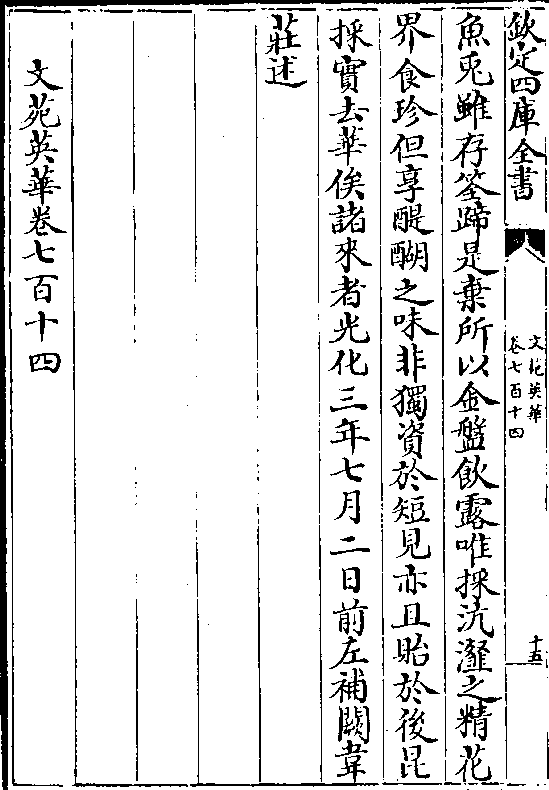 欽定四庫全書
文苑英華
卷七百十四
十五
魚兎雖存筌蹄是棄所以金盤飲露唯採沆瀣之精花
界食珍但享醍醐之味非獨資於短見亦且貽於後昆
採實去華俟諸來者光化三年七月二日前左補闕韋
莊述
文苑英華卷七百十四